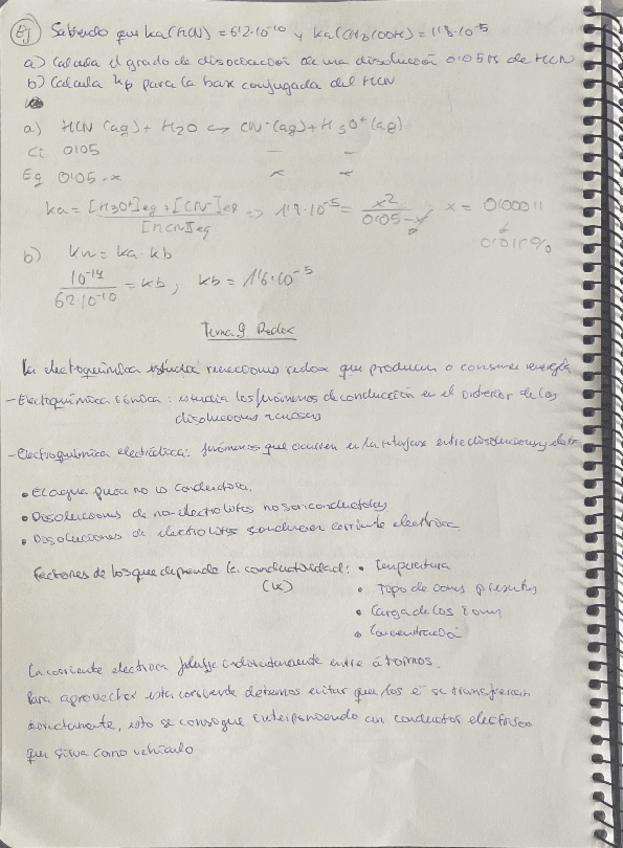 Ej Sabiendo que ka(HCN) = 6'2·10⁻¹⁰ y ka(CH3COOH) = 1'8·10⁻⁵
a) Calcula el grado de disociación de una disolución 0'05M de HCN
b) Calcula kb para la base conjugada del HCN
a) HCN (aq) + H2O ⇌ CN⁻(aq) + H3O⁺(aq)
Ci 0'05 — —
Eq 0'05-x x x
ka = [H3O⁺]eq · [CN⁻]eq / [HCN]eq => 1'8·10⁻⁵ = x² / 0'05-x ; x = 0'00011
0'011%
b) kw = ka · kb
10⁻¹⁴ / 6'2·10⁻¹⁰ = kb ; kb = 1'6·10⁻⁵
Tema 9 Redox
La electroquímica estudia reacciones redox que producen o consumen energía
- Electroquímica iónica : estudia los fenómenos de conducción en el interior de las
disoluciones iónicas
- Electroquímica electródica: fenómenos que ocurren en la interfase entre disoluciones y
• El agua pura no es conductora.
• Disoluciones de no-electrolitos no son conductoras
• Disoluciones de electrolitos conducen corriente eléctrica
Factores de los que depende la conductividad: • Temperatura
(k) • Tipo de iones presentes
• Carga de los iones
• Concentración
La corriente eléctrica fluye indistintamente entre átomos.
Para aprovechar esta corriente debemos evitar que los e⁻ se transfieran
directamente, esto se consigue interponiendo un conductor eléctrico
que sirva como vehículo